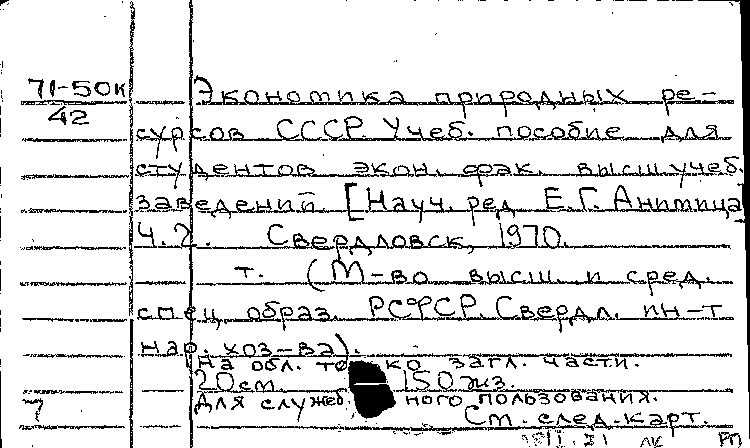 71-50к
42
Экономика природных ре-
сурсов СССР. Учеб. пособие для
студентов экон. фак. высш. учеб.
заведений. [Науч. ред Е.Г. Анимица]
Ч.2. Свердловск, 1970.
т. (М-во высш. и сред.
спец. образ. РСФСР. Свердл. ин-т
нар. хоз-ва).
На обл. то ко загл. части.
20см. 150 экз.
Для служеб. ного пользования.
7 См. след. карт.
РП